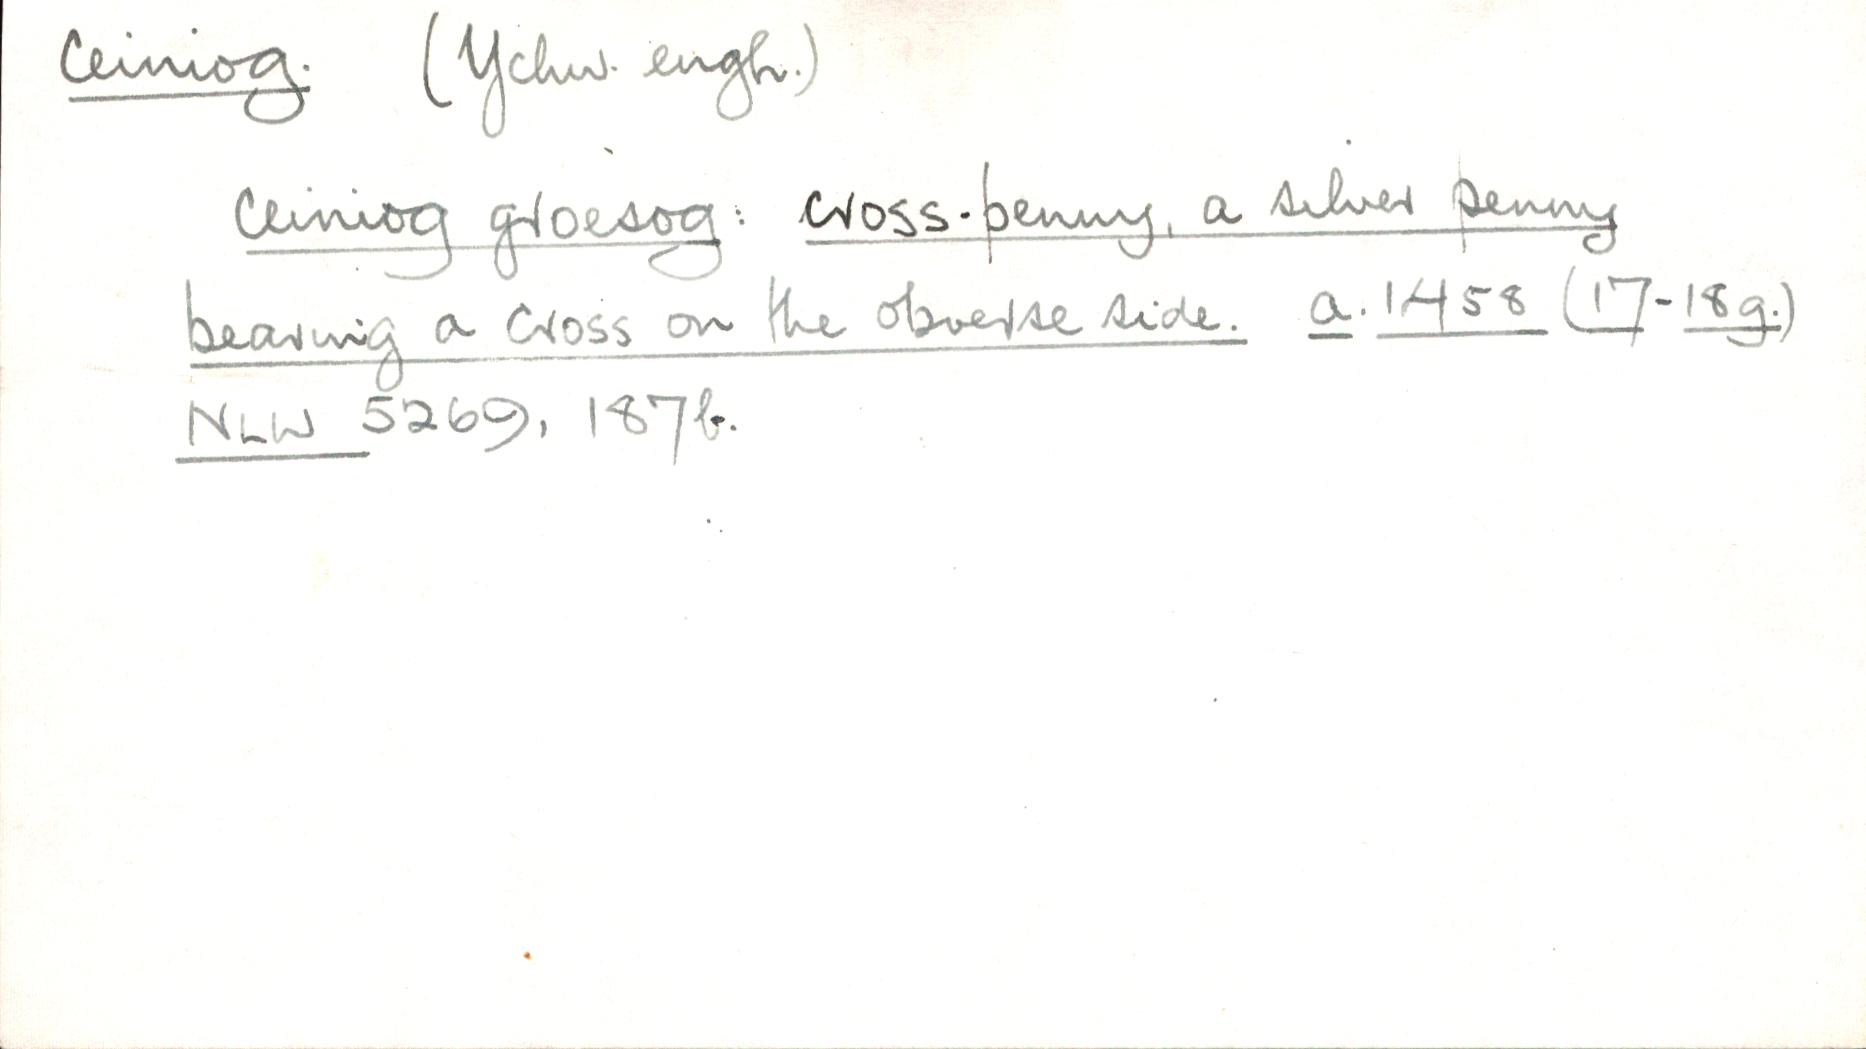 Ceiniog. (Ychw. engh.)
Ceiniog groesog: cross-penny, a silver penny
bearing a cross on the obverse side. a. 1458 (17-18g.)
NLW 5269, 187b.